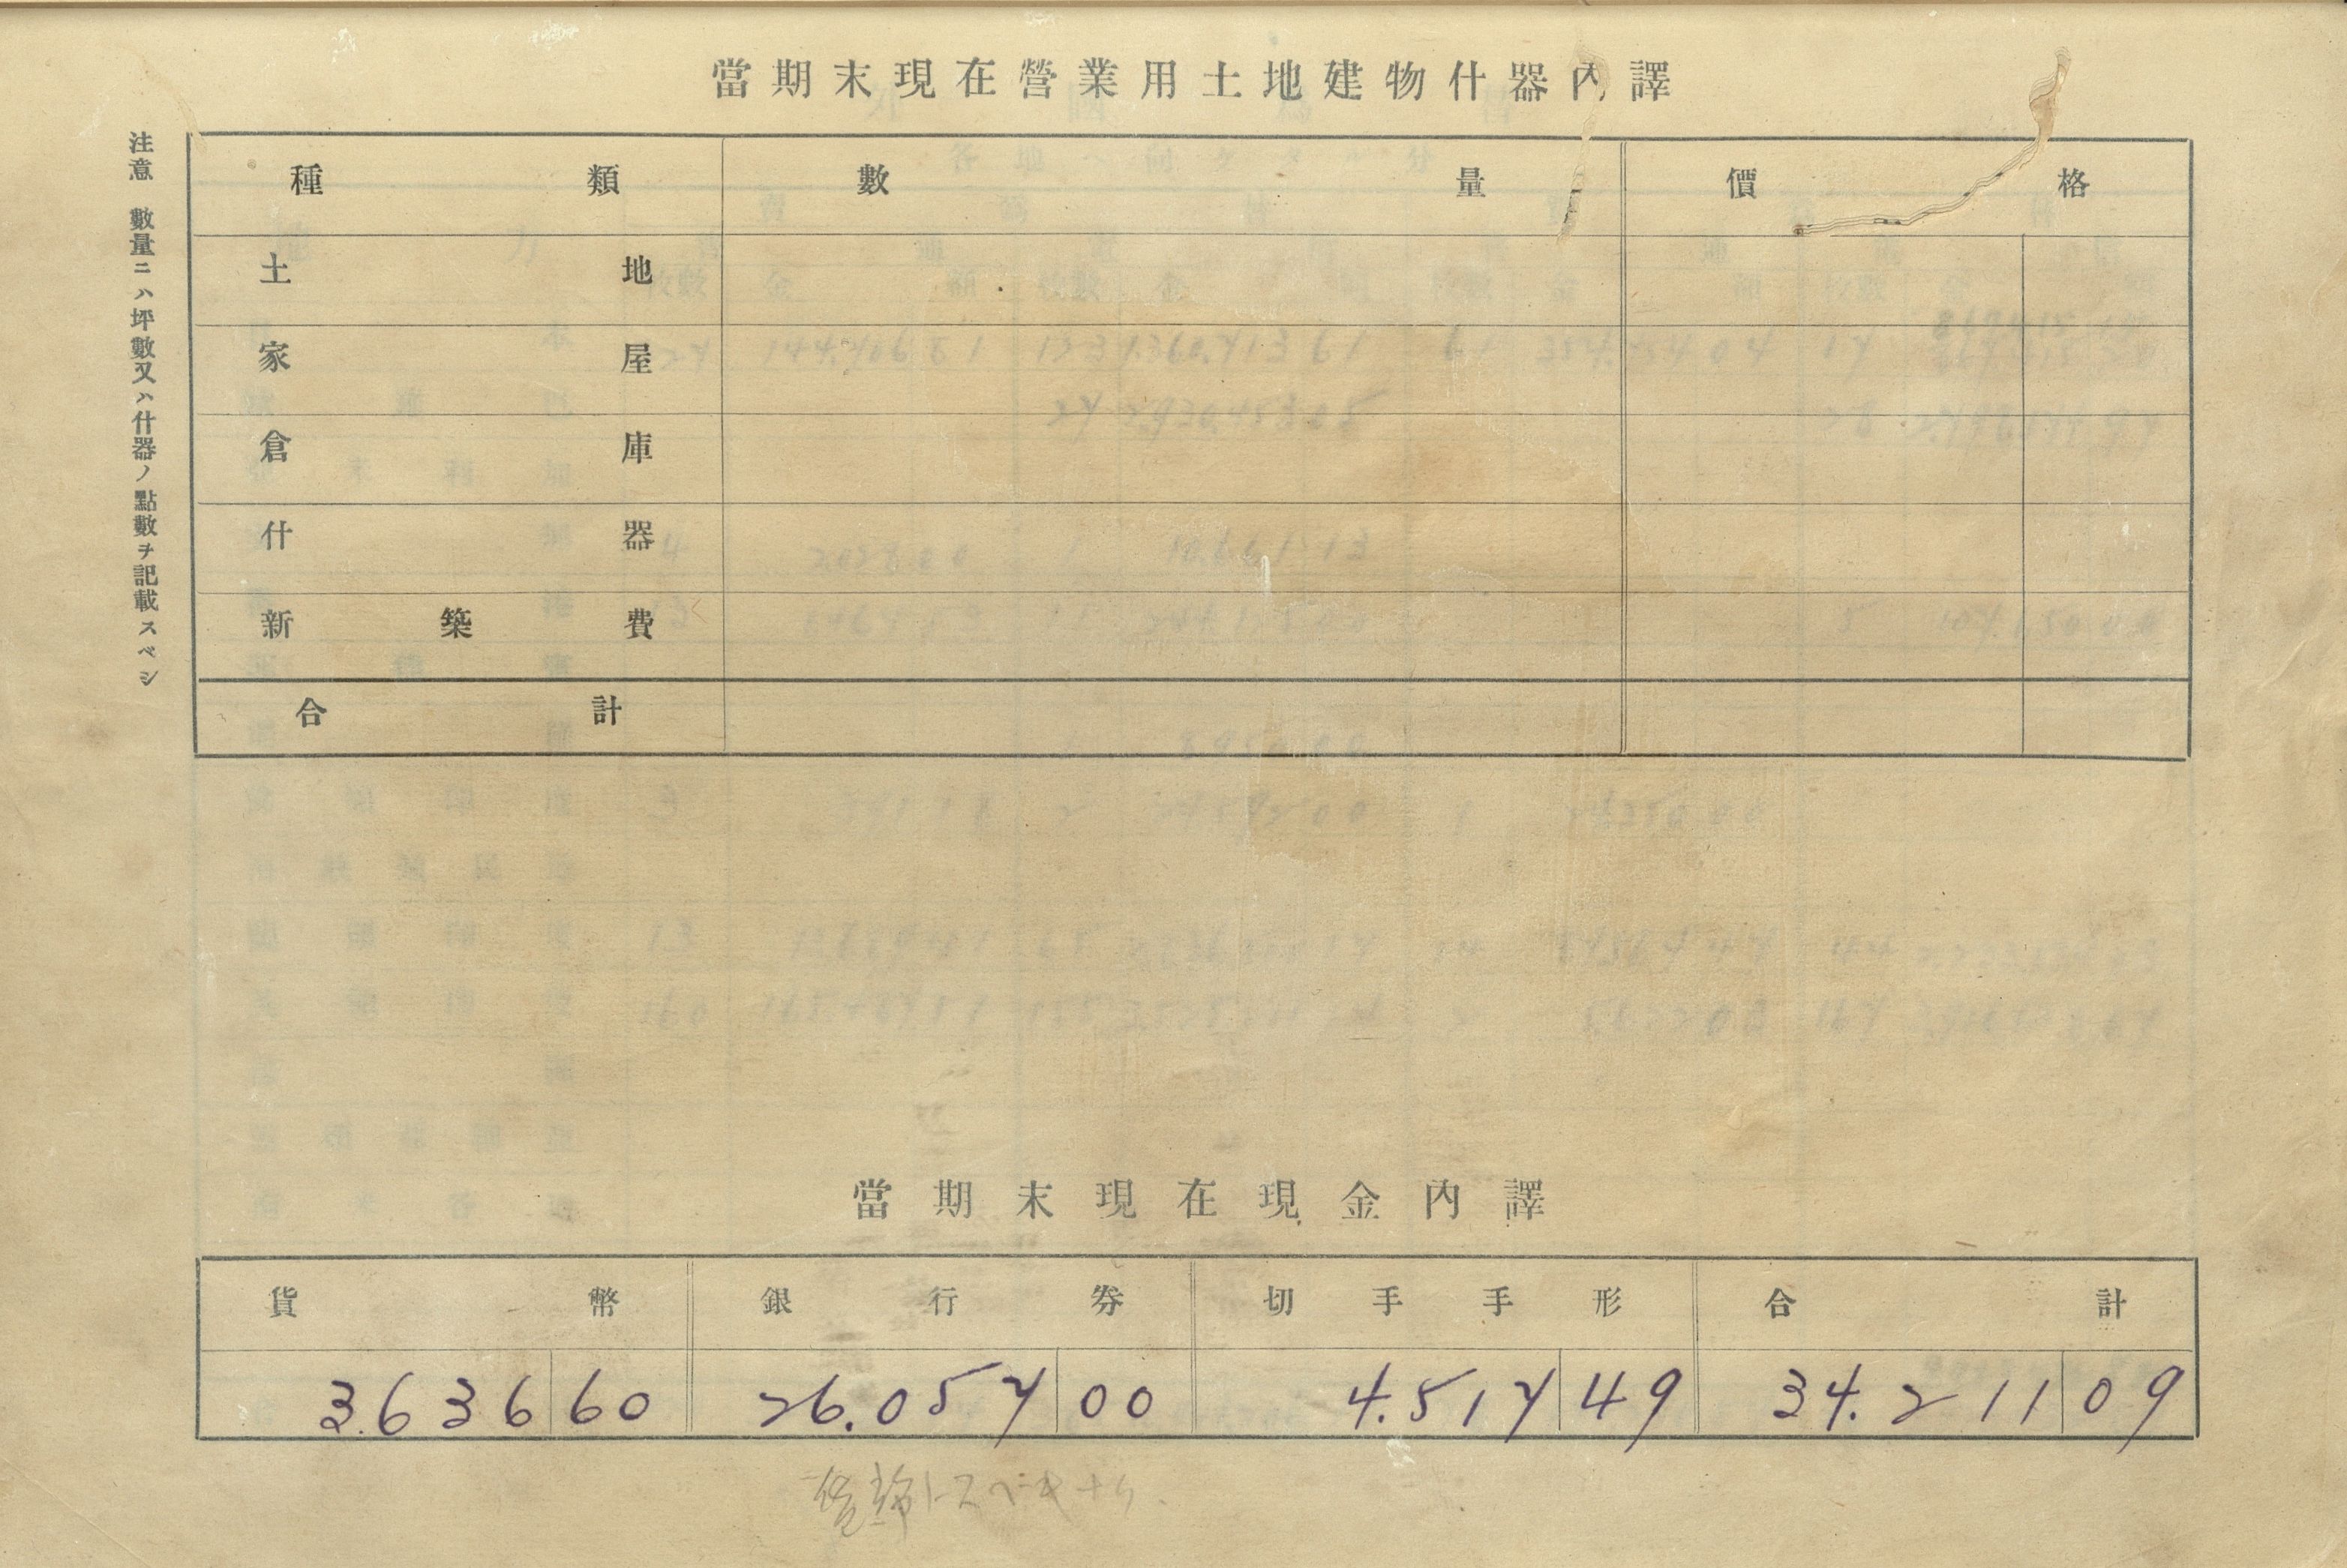 當期末現在營業用土地建物什器內譯
注意 數量ニハ坪數又ハ什器ノ點數ヲ記載スベシ
種類 數量 價格
土地
家屋
倉庫
什器
新築費
合計
當期末現在現金內譯
貨幣 銀行券 切手手形 合計
3.636 60 26.057 00 4.517 49 34.211 09
トスベキナリ